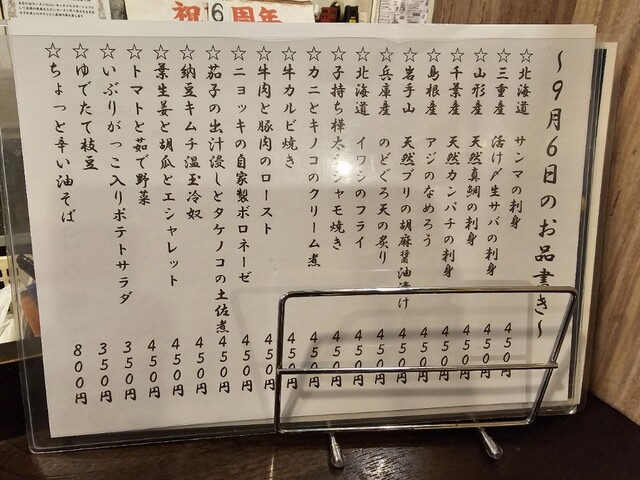 祝 16周年
〜9月6日のお品書き〜
☆北海道 サンマの刺身 450円
☆三重産 活け〆生サバの刺身 450円
☆山形産 天然真鯛の刺身 450円
☆千葉産 天然カンパチの刺身 450円
☆島根産 アジのなめろう 450円
☆岩手山 天然ブリの胡麻醤油漬け 450円
☆兵庫産 のどぐろ天の炙り 450円
☆北海道 イワシのフライ 450円
☆子持ち樺太シシャモ焼き 450円
☆カニとキノコのクリーム煮 450円
☆牛カルビ焼き 450円
☆牛肉と豚肉のロースト 450円
☆ニョッキの自家製ボロネーゼ 450円
☆茄子の出汁浸しとタケノコの土佐煮 450円
☆納豆キムチ温玉冷奴 450円
☆葉生姜と胡瓜とエシャレット 450円
☆トマトと茹で野菜 450円
☆いぶりがっこ入りポテトサラダ 350円
☆ゆでたて枝豆 350円
☆ちょっと辛い油そば 800円